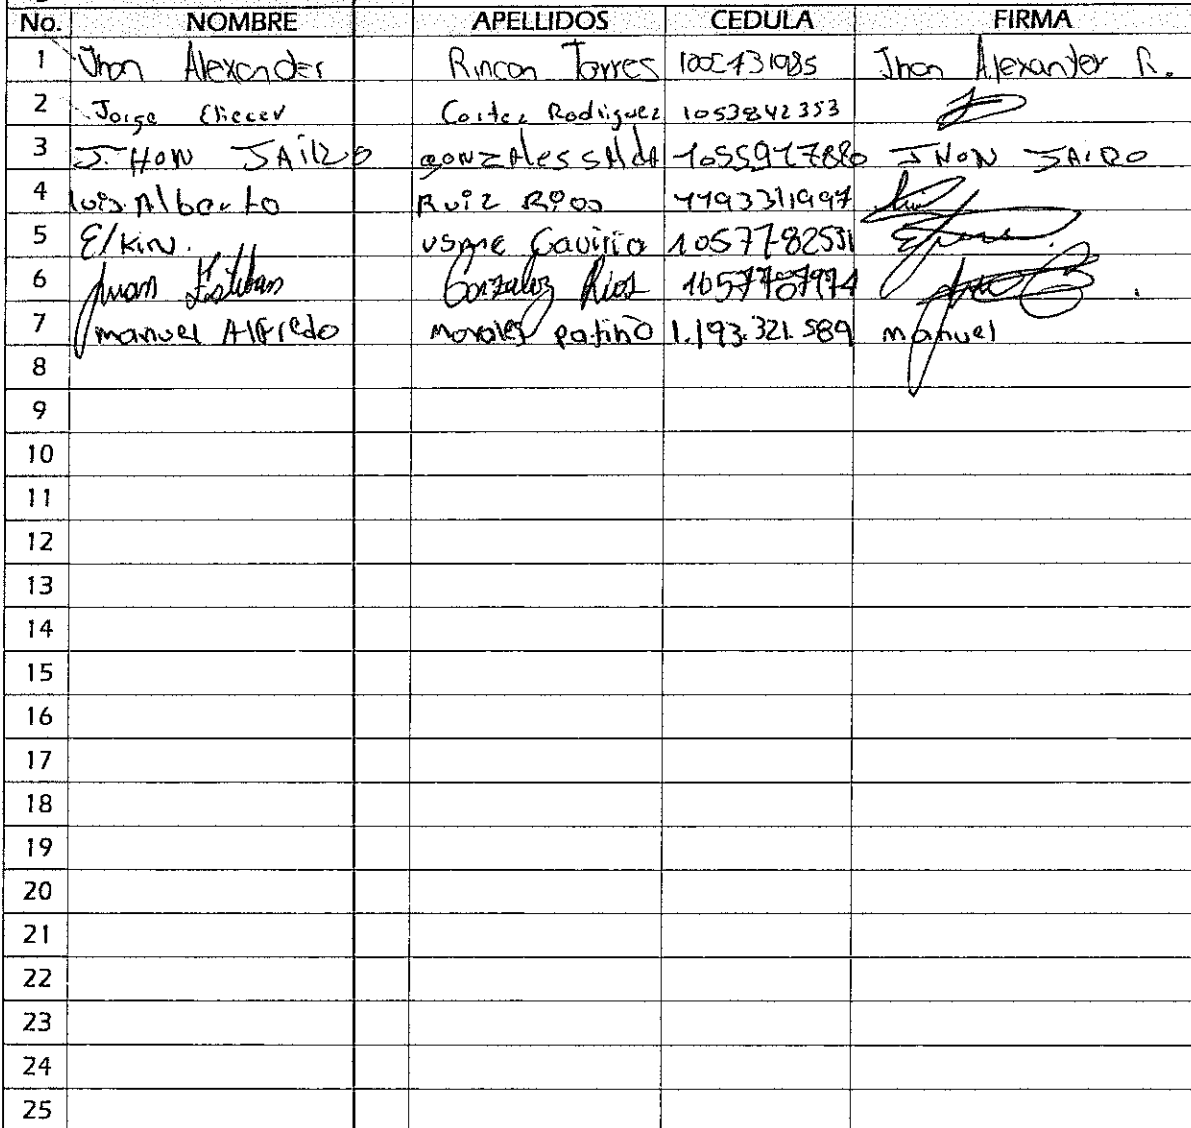 No. NOMBRE APELLIDOS CEDULA FIRMA
1 Jhon Alexander Rincon Torres Jhon Alexander R.
2 Jorge Eliecer Cortez Rodriguez 1053842353
3 J.HON JAIRO gonzAles 1055917880 JHON JAIRO
4 luis Alberto Ruiz Rios 1193311997
5 Elkin. usme Gaviria 1057782531
6 Juan Esteban Gonzalez Rios 1057787974
7 manuel Alfredo morales patiño 1.193.321.589 manuel
8
9
10
11
12
13
14
15
16
17
18
19
20
21
22
23
24
25